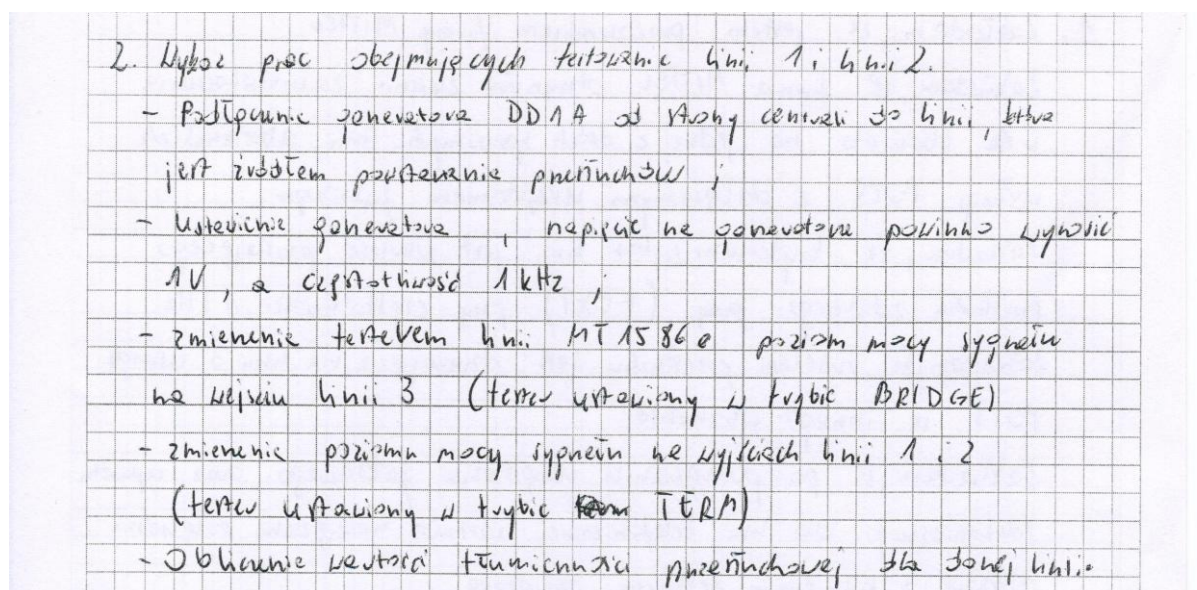 2. Wykaz prac obejmujących testowanie linii 1 i linii 2.
- Podłączenie generatora DD1A od strony centrali do linii, która
jest źródłem powstawania przesłuchów ;
- Ustawienie generatora , napięcie na generatorze powinno wynosić
1V, a częstotliwość 1 kHz ;
- zmierzenie testerem linii MT 1586e poziom mocy sygnału
na wejściu linii 3 (tester ustawiony w trybie BRIDGE)
- zmierzenie poziomu mocy sygnału na wyjściach linii 1 i 2
(tester ustawiony w trybie TERM)
- Obliczenie wartości tłumienności przesłuchowej dla danej linii.